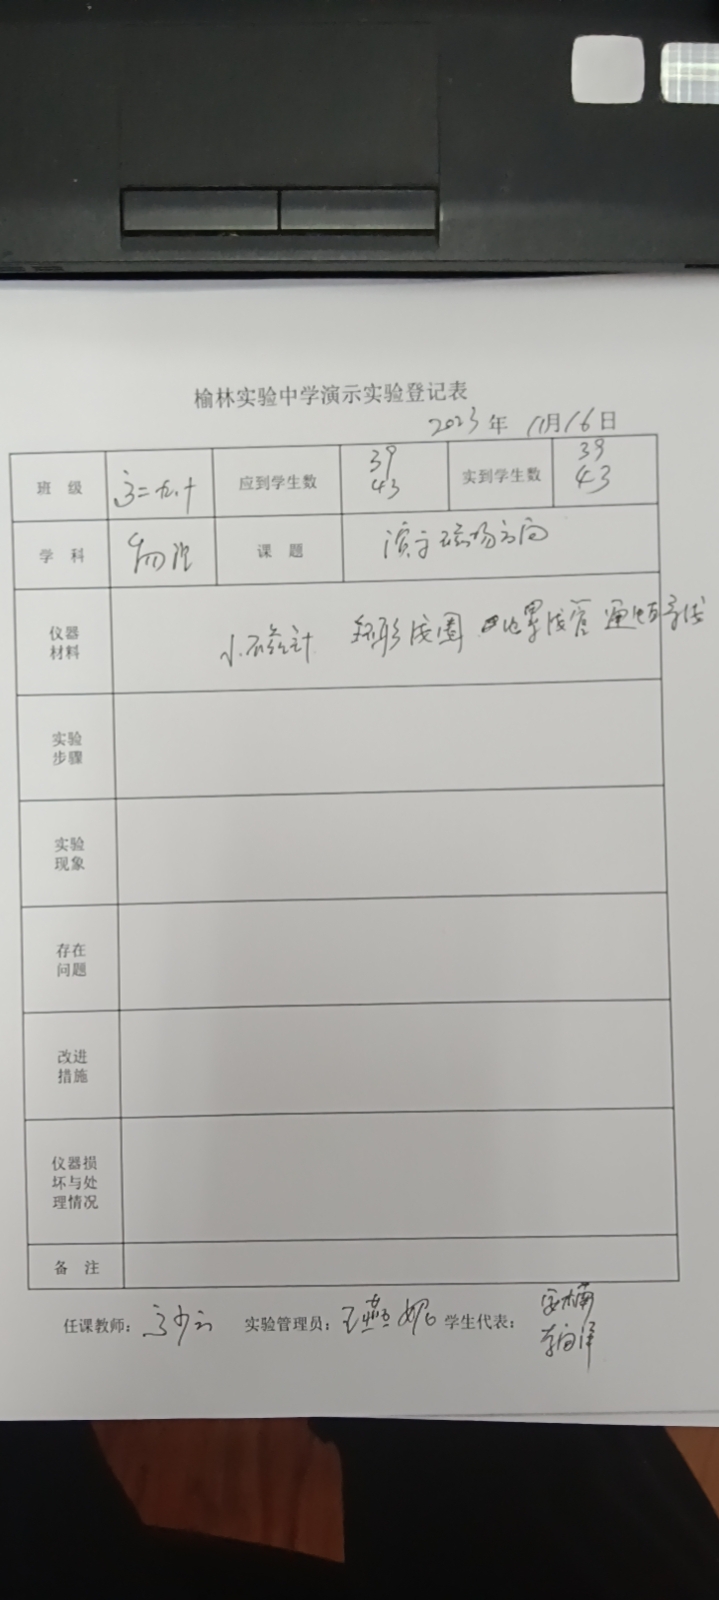 榆林实验中学演示实验登记表
2023年 11月16日
班 级 高二九.十 应到学生数 39 43 实到学生数 39 43
学 科 物理 课 题 演示磁场方向
仪器材料 小磁针 环形线圈 螺线管 通电导线
实验步骤
实验现象
存在问题
改进措施
仪器损坏与处理情况
备 注
任课教师: 实验管理员: 王燕妮 学生代表: